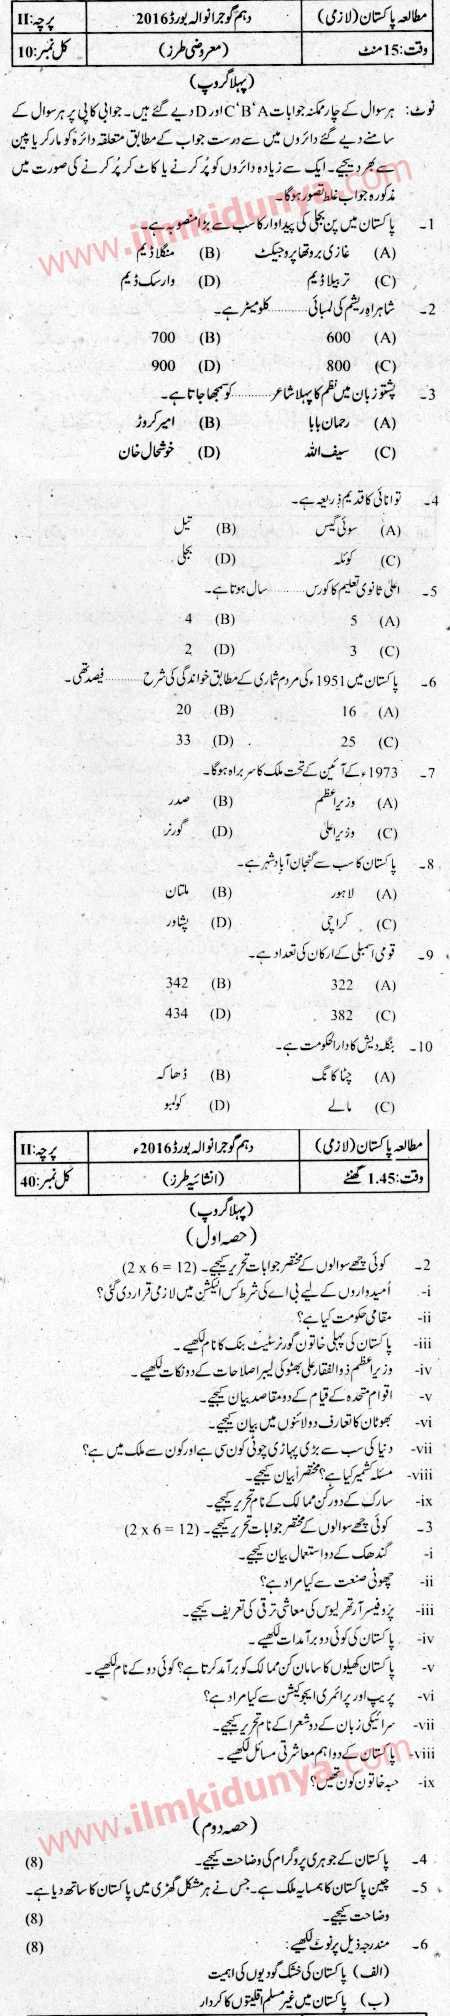 مطالعہ پاکستان (لازمی) دہم گوجرانوالہ بورڈ 2016 پرچہ: II
وقت: 15 منٹ (معروضی طرز) کل نمبر: 10
(پہلا گروپ)
نوٹ: ہر سوال کے چار ممکنہ جوابات A، B، C اور D دیے گئے ہیں۔ جوابی کاپی پر ہر سوال کے
سامنے دیے گئے دائروں میں سے درست جواب کے مطابق متعلقہ دائرہ کو مارکر یا پین
سے بھر دیجیے۔ ایک سے زیادہ دائروں کو پُر کرنے یا کاٹ کر پُر کرنے کی صورت میں
مذکورہ جواب غلط تصور ہوگا۔
www.ilmkidunya.com
1۔ پاکستان میں پن بجلی کی پیداوار کا سب سے بڑا منصوبہ ہے۔
(A) غازی بروتھا پروجیکٹ (B) منگلا ڈیم
(C) تربیلا ڈیم (D) وارسک ڈیم
2۔ شاہراہِ ریشم کی لمبائی ......... کلومیٹر ہے۔
(A) 600 (B) 700
(C) 800 (D) 900
3۔ پشتو زبان میں نظم کا پہلا شاعر ......... کو سمجھا جاتا ہے۔
(A) رحمان بابا (B) امیر کروڑ
(C) سیف اللہ (D) خوشحال خان
4۔ توانائی کا قدیم ذریعہ ہے۔
(A) سوئی گیس (B) تیل
(C) کوئلہ (D) بجلی
5۔ اعلیٰ ثانوی تعلیم کا کورس ......... سال ہوتا ہے۔
(A) 5 (B) 4
(C) 3 (D) 2
6۔ پاکستان میں 1951ء کی مردم شماری کے مطابق خواندگی کی شرح ......... فیصد تھی۔
(A) 16 (B) 20
(C) 25 (D) 33
7۔ 1973ء کے آئین کے تحت ملک کا سربراہ ہوگا۔
(A) وزیرِ اعظم (B) صدر
(C) وزیرِ اعلیٰ (D) گورنر
8۔ پاکستان کا سب سے گنجان آباد شہر ہے۔
(A) لاہور (B) ملتان
(C) کراچی (D) پشاور
9۔ قومی اسمبلی کے ارکان کی تعداد ہے۔
(A) 322 (B) 342
(C) 382 (D) 434
10۔ بنگلہ دیش کا دارالحکومت ہے۔
(A) چٹا کانگ (B) ڈھاکہ
(C) مالے (D) کولمبو
مطالعہ پاکستان (لازمی) دہم گوجرانوالہ بورڈ 2016ء پرچہ: II
وقت: 1.45 گھنٹے (انشائیہ طرز) کل نمبر: 40
(پہلا گروپ)
(حصہ اول)
2۔ کوئی چھے سوالوں کے مختصر جوابات تحریر کیجیے۔ (2 x 6 = 12)
i- اُمیدواروں کے لیے بی اے کی شرط کس الیکشن میں لازمی قرار دی گئی؟
ii- مقامی حکومت کیا ہے؟
iii- پاکستان کی پہلی خاتون گورنر سٹیٹ بنک کا نام لکھیے۔
iv- وزیرِ اعظم ذوالفقار علی بھٹو کی لیبر اصلاحات کے دو نکات لکھیے۔
v- اقوام متحدہ کے قیام کے دو مقاصد بیان کیجیے۔
vi- بھوٹان کا تعارف دو لائنوں میں بیان کیجیے۔
vii- دنیا کی سب سے بڑی پہاڑی چوٹی کون سی ہے اور کون سے ملک میں ہے؟
viii- مسئلہ کشمیر کیا ہے؟ مختصراً بیان کیجیے۔
ix- سارک کے دو رکن ممالک کے نام تحریر کیجیے۔
3۔ کوئی چھے سوالوں کے مختصر جوابات تحریر کیجیے۔ (2 x 6 = 12)
i- گندھک کے دو استعمال بیان کیجیے۔
ii- چھوٹی صنعت سے کیا مراد ہے؟
iii- پروفیسر آرتھر لیوس کی معاشی ترقی کی تعریف کیجیے۔
iv- پاکستان کی کوئی دو برآمدات لکھیے۔
v- پاکستان کھیلوں کا سامان کن ممالک کو برآمد کرتا ہے؟ کوئی دو کے نام لکھیے۔
vi- پریپ اور پرائمری ایجوکیشن سے کیا مراد ہے؟
vii- سرائیکی زبان کے دو شعرا کے نام تحریر کیجیے۔
viii- پاکستان کے دو اہم معاشرتی مسائل لکھیے۔
ix- حبہ خاتون کون تھیں؟
www.ilmkidunya.com
(حصہ دوم)
4۔ پاکستان کے جوہری پروگرام کی وضاحت کیجیے۔ (8)
5۔ چین پاکستان کا ہمسایہ ملک ہے۔ جس نے ہر مشکل گھڑی میں پاکستان کا ساتھ دیا ہے۔
وضاحت کیجیے۔ (8)
6۔ مندرجہ ذیل پر نوٹ لکھیے: (8)
(الف) پاکستان کی خشک گودیوں کی اہمیت
(ب) پاکستان میں غیر مسلم اقلیتوں کا کردار